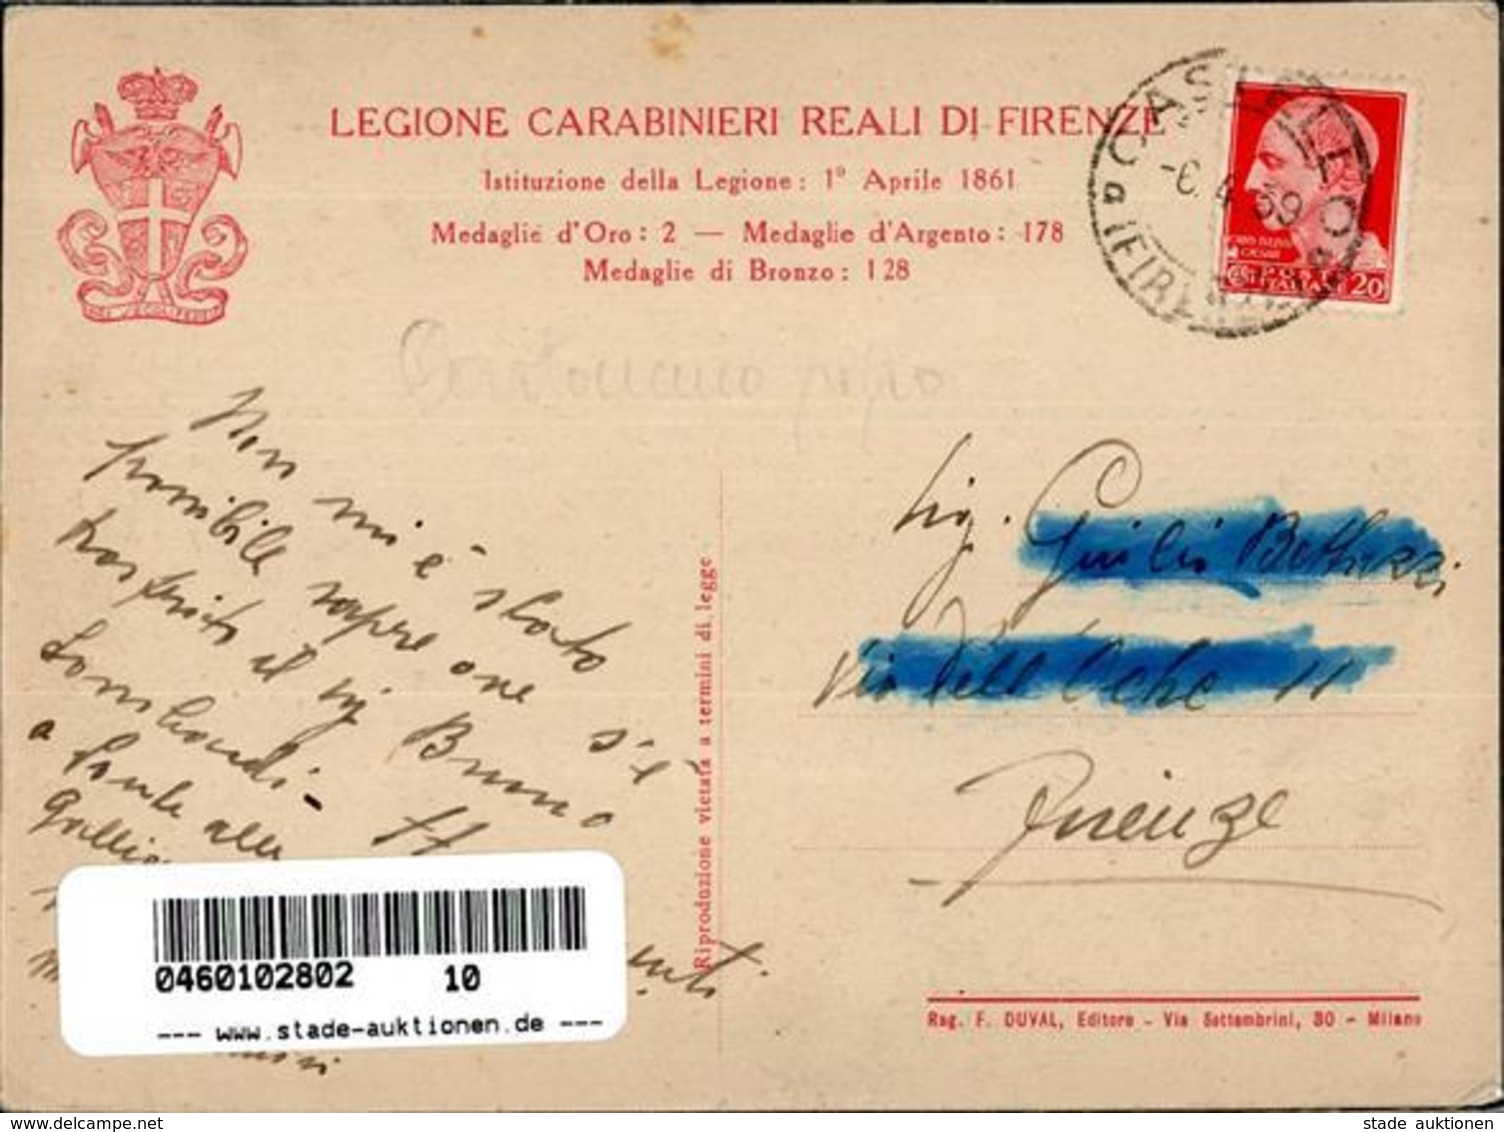 LEGIONE CARABINIERI REALI DI FIRENZE
Istituzione della Legione: 1° Aprile 1861
Medaglie d'Oro: 2 — Medaglie d'Argento: 178
Medaglie di Bronzo: 128
CASTELLO
-6.4.39
(FIRENZE)
POSTE
ITALIANE
20
Non mi è stato
possibile sapere ove s'è
trasferito il sig Bruno
Lombardi -
a Ponte alle
Riproduzione vietata a termini di legge
Sig. Giulio Bettuzzi
Via dell'Oche 11
Firenze
Rag. F. DUVAL, Editore - Via Settembrini, 30 - Milano
0460102802 10
--- www.stade-auktionen.de ---
www.delcampe.net
stade auktionen